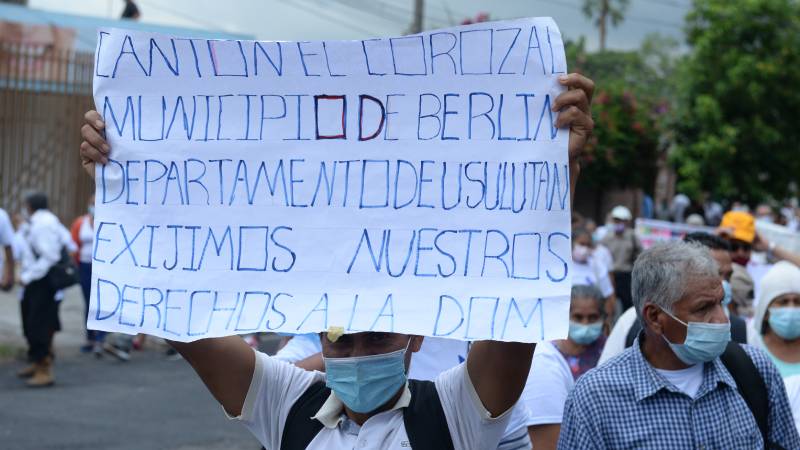 CANTON EL COROZAL
MUNICIPIO DE BERLIN
DEPARTAMENTO DE USULUTAN
EXIJIMOS NUESTROS
DERECHOS A LA DOM